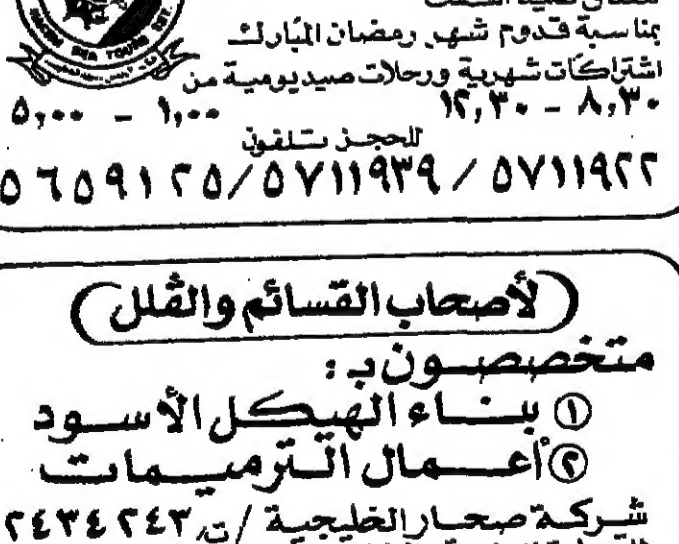 بمناسبة قدوم شهر رمضان المبارك
اشتراكات شهرية ورحلات صيد يومية من
٨,٣٠ - ١٢,٣٠ ١,٠٠ - ٥,٠٠
للحجز تلفون
٥٧١١٩٢٢ / ٥٧١١٩٣٩ / ٥٦٥٩١٢٥
لأصحاب القسائم والڤلل
متخصصون بـ :
① بناء الهيكل الأسود
② أعمال الترميمات
شركة صحار الخليجية / ت, ٢٤٣٤٢٤٣